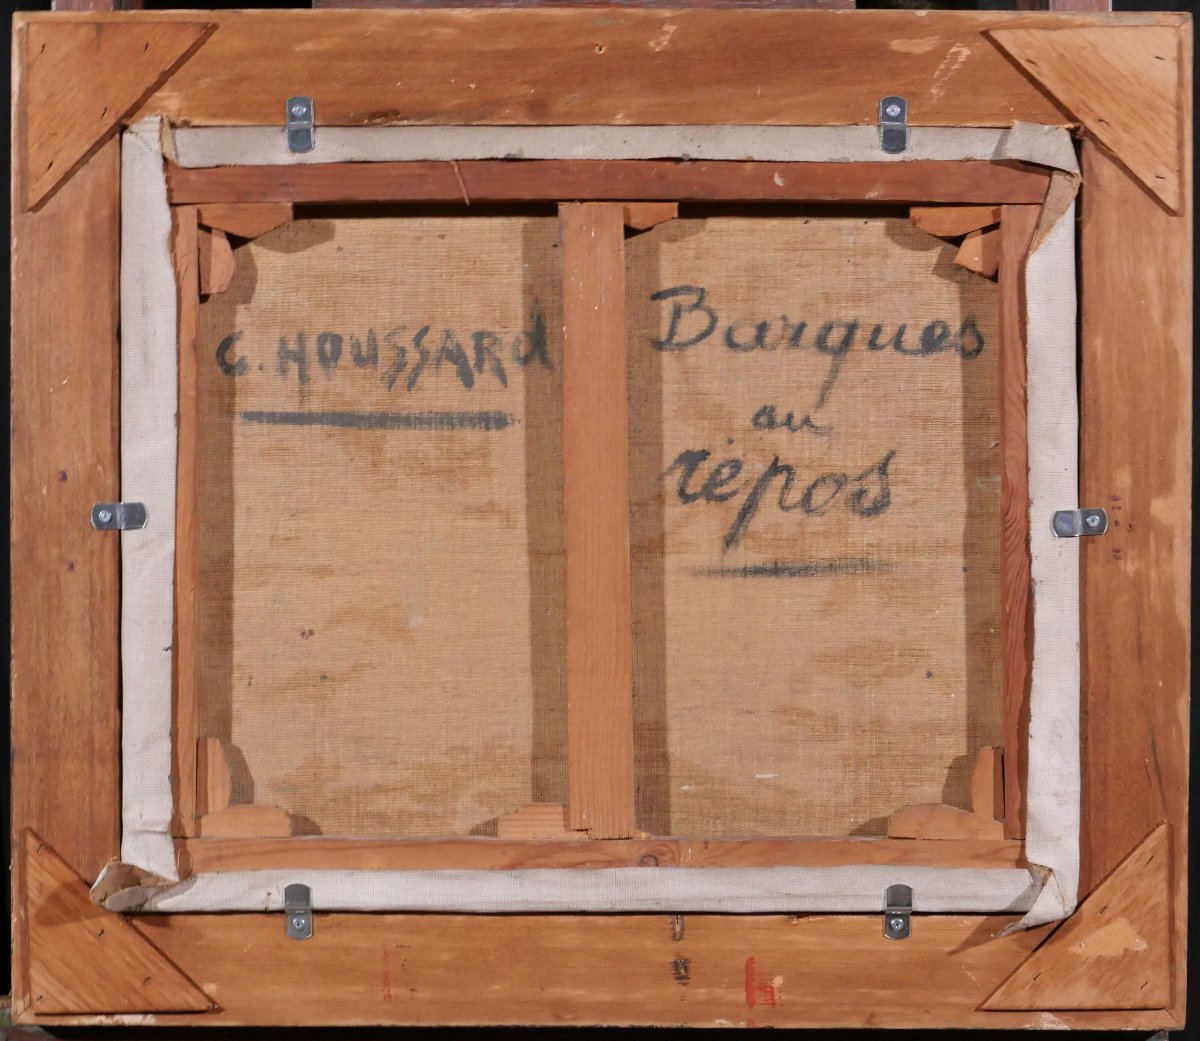 C. HOUSSARd
Barques
au
répos